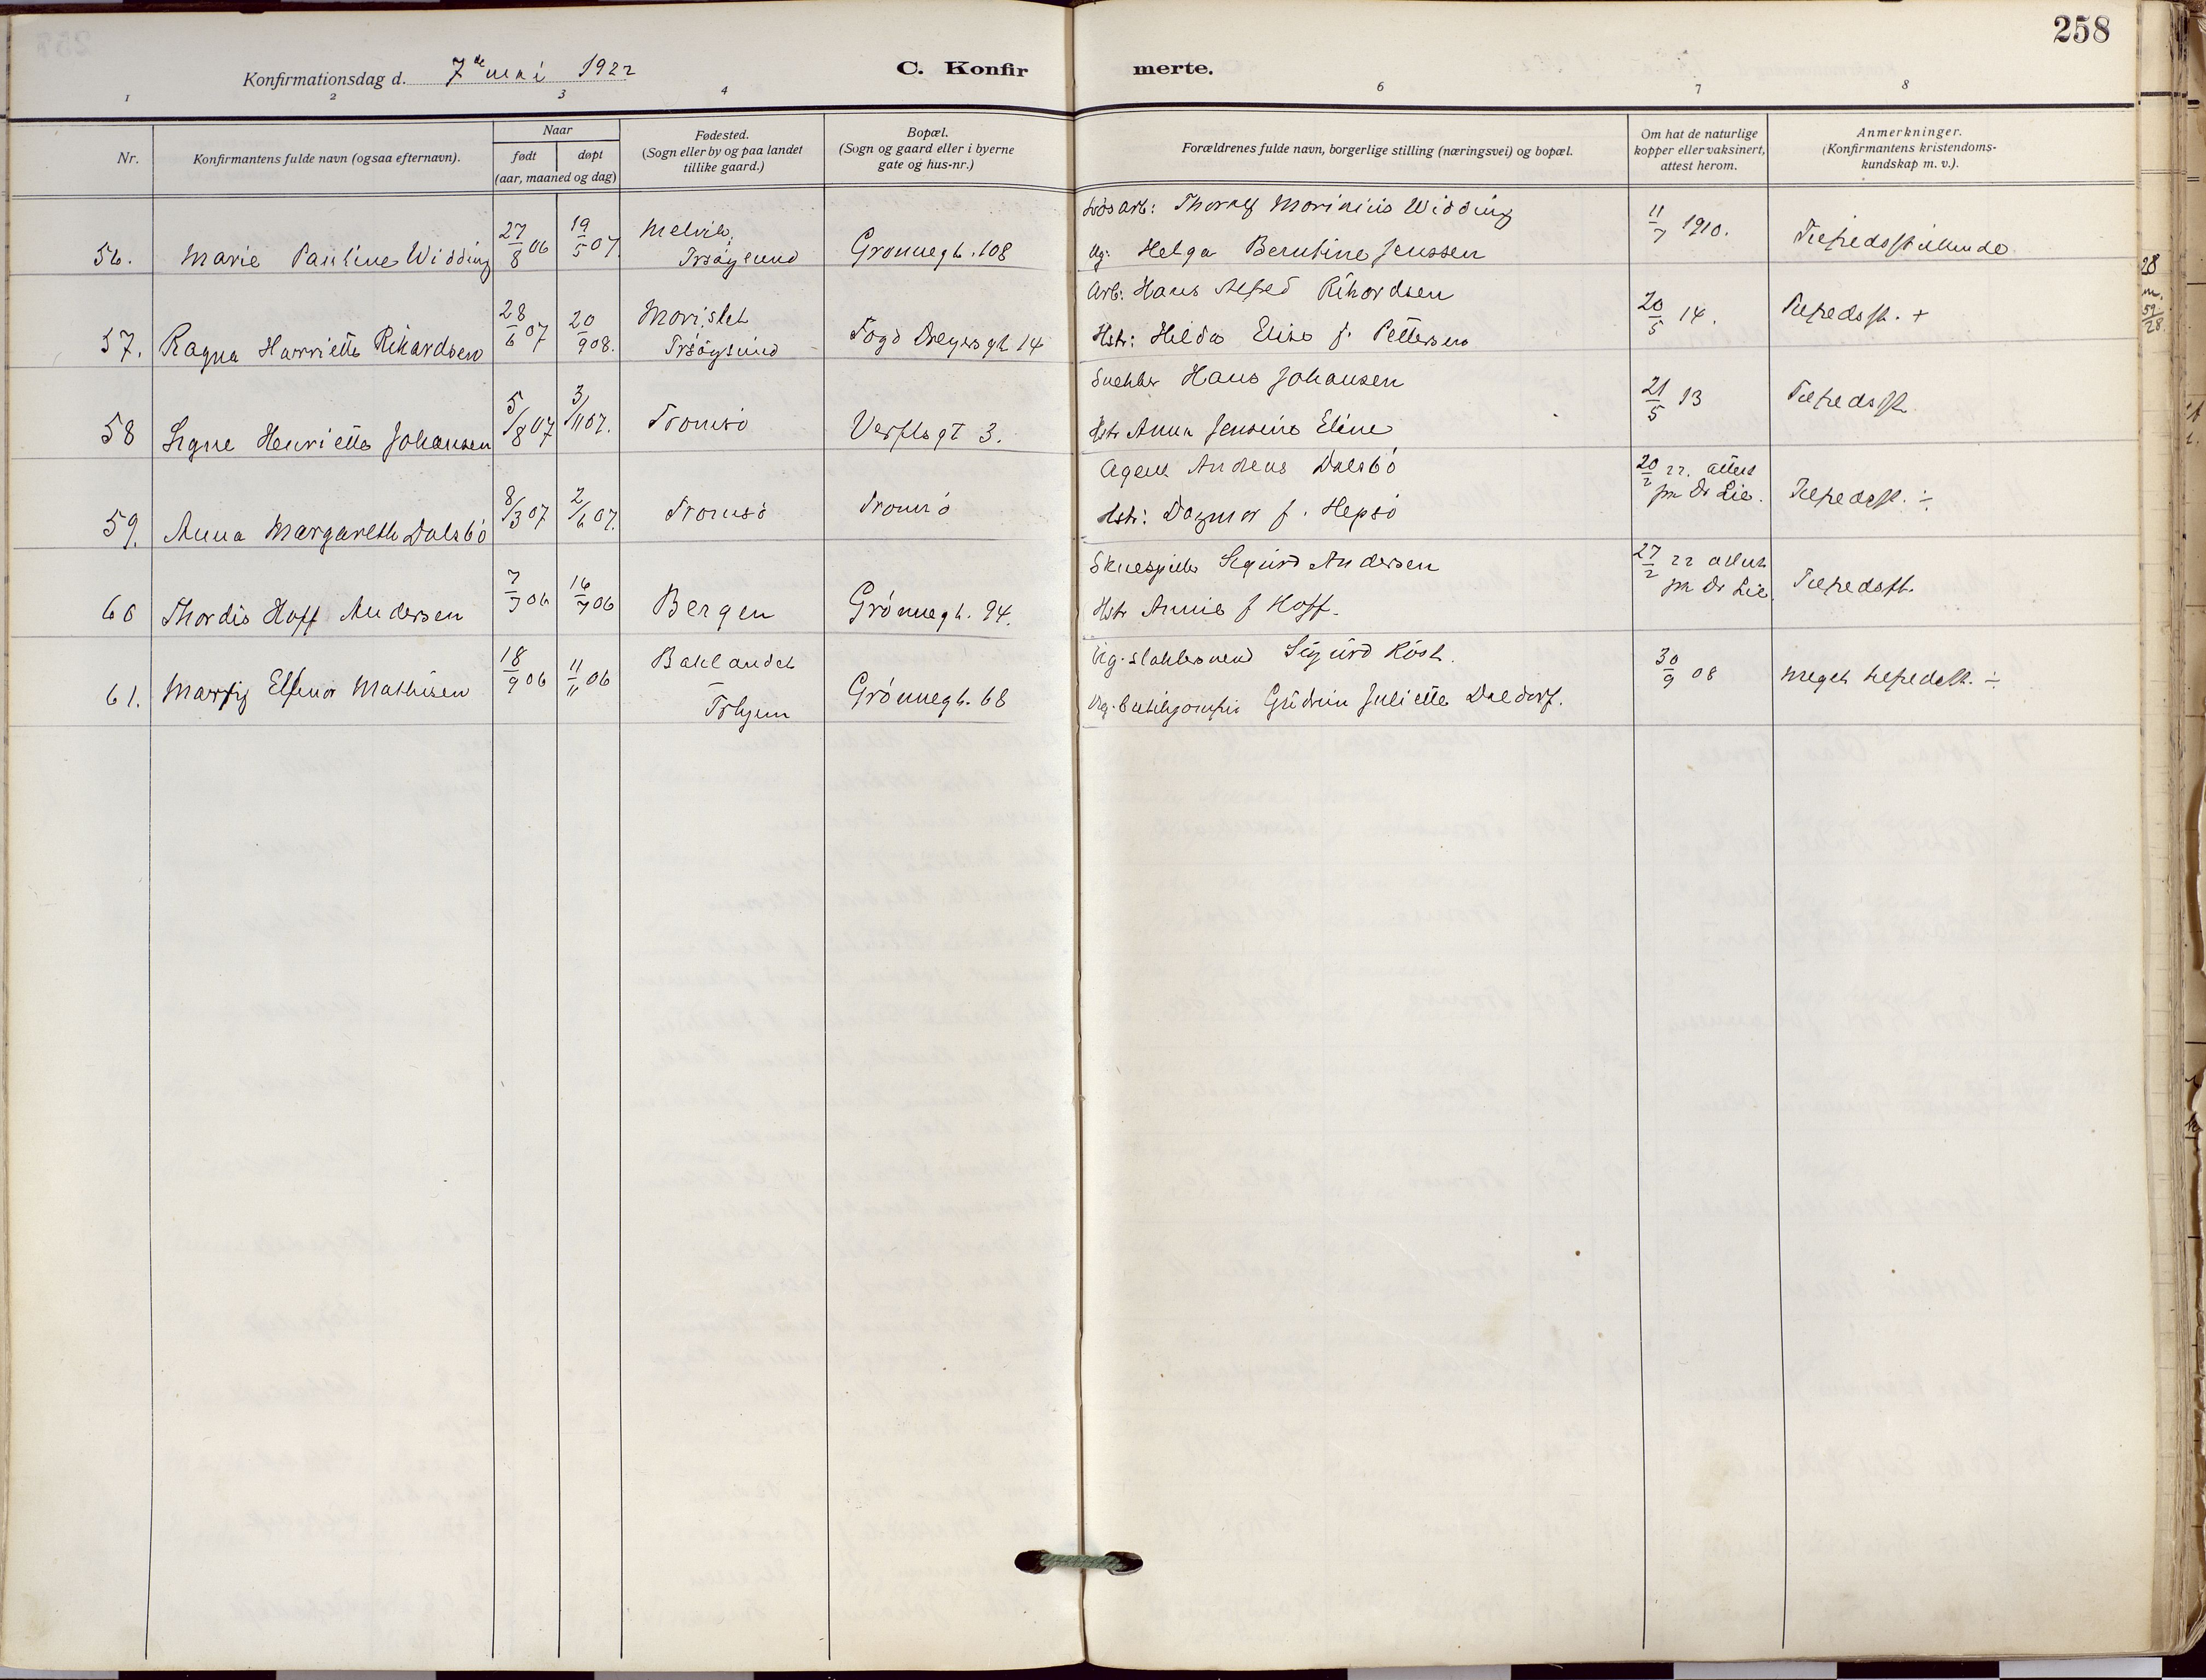 258
Konfirmationsdag d. 7de mai 1922
C. Konfirmerte.
1 2 3 4 6 7 8
Nr.
Konfirmantens fulde navn (ogsaa efternavn).
Naar
født døpt
(aar, maaned og dag)
Fødested.
(Sogn eller by og paa landet
tillike gaard.)
Bopæl.
(Sogn og gaard eller i byerne
gate og hus-nr.)
Forældrenes fulde navn, borgerlige stilling (næringsvei) og bopæl.
Om hat de naturlige
kopper eller vaksinert,
attest herom.
Anmerkninger.
(Konfirmantens kristendoms-
kundskap m. v.).
56. Marie Pauline Widding 27/8 06 19/5 07. Melvik, Trsøysund Grønnegt. 108
Løsarb: Thoralf Marinius Widding
Ug: Helga Berntine Jenssen
11/7 1910. Tilfredsstillende
57. Ragna Harriette Rikardsen 28/6 07 20/9 08. Trsøysund Fogd Dreyersgt 14
Arb: Hans Alfred Rikardsen
Hstr: Hilda Elise f. Pettersen
20/5 14. Tilfredsst. +
58 Signe Henriette Johansen 5/8 07 3/11 07. Tromsø Verftsgt 3.
Snekker Hans Johansen
Hstr Anna Jensine Eline
21/5 13 Tilfredsst.
59. Anna Margarethe Dalsbø 8/3 07 2/6 07. Tromsø Tromsø
Agent Andreas Dalsbø
Hstr: Dagmar f. Hepsø
20/2 22. attest
fra Dr Lie. Tilfredsst. ÷
60 Thordis Hoff Andersen 7/3 06 16/7 06 Bergen Grønnegt. 94.
Skuespiller Sigurd Andersen
Hstr Annie f Hoff.
27/2 22 attest
fra Dr Lie. Tilfredsst.
61. Elfinor Mathisen 18/9 06 11/11 06 Baklandet Trhjem Grønnegt. 68
Ug. slaktersvend Sigurd Röst.
Ug. butikjomfru Gudrun Juliette Daldorf.
30/9 08 Meget tilfredsst. ÷